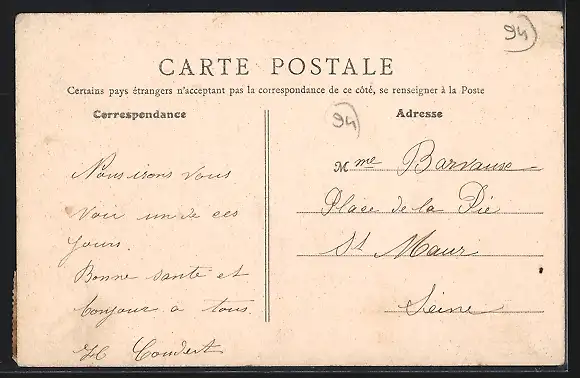 94
CARTE POSTALE
Certains pays étrangers n'acceptant pas la correspondance de ce côté, se renseigner à la Poste
Correspondance
Nous irons vous
voir un de ces
jours.
Bonne santé et
bonjour a tous
H Coudert
94
Adresse
Mme Barvaux
Place de la Pie
St Maur
Seine